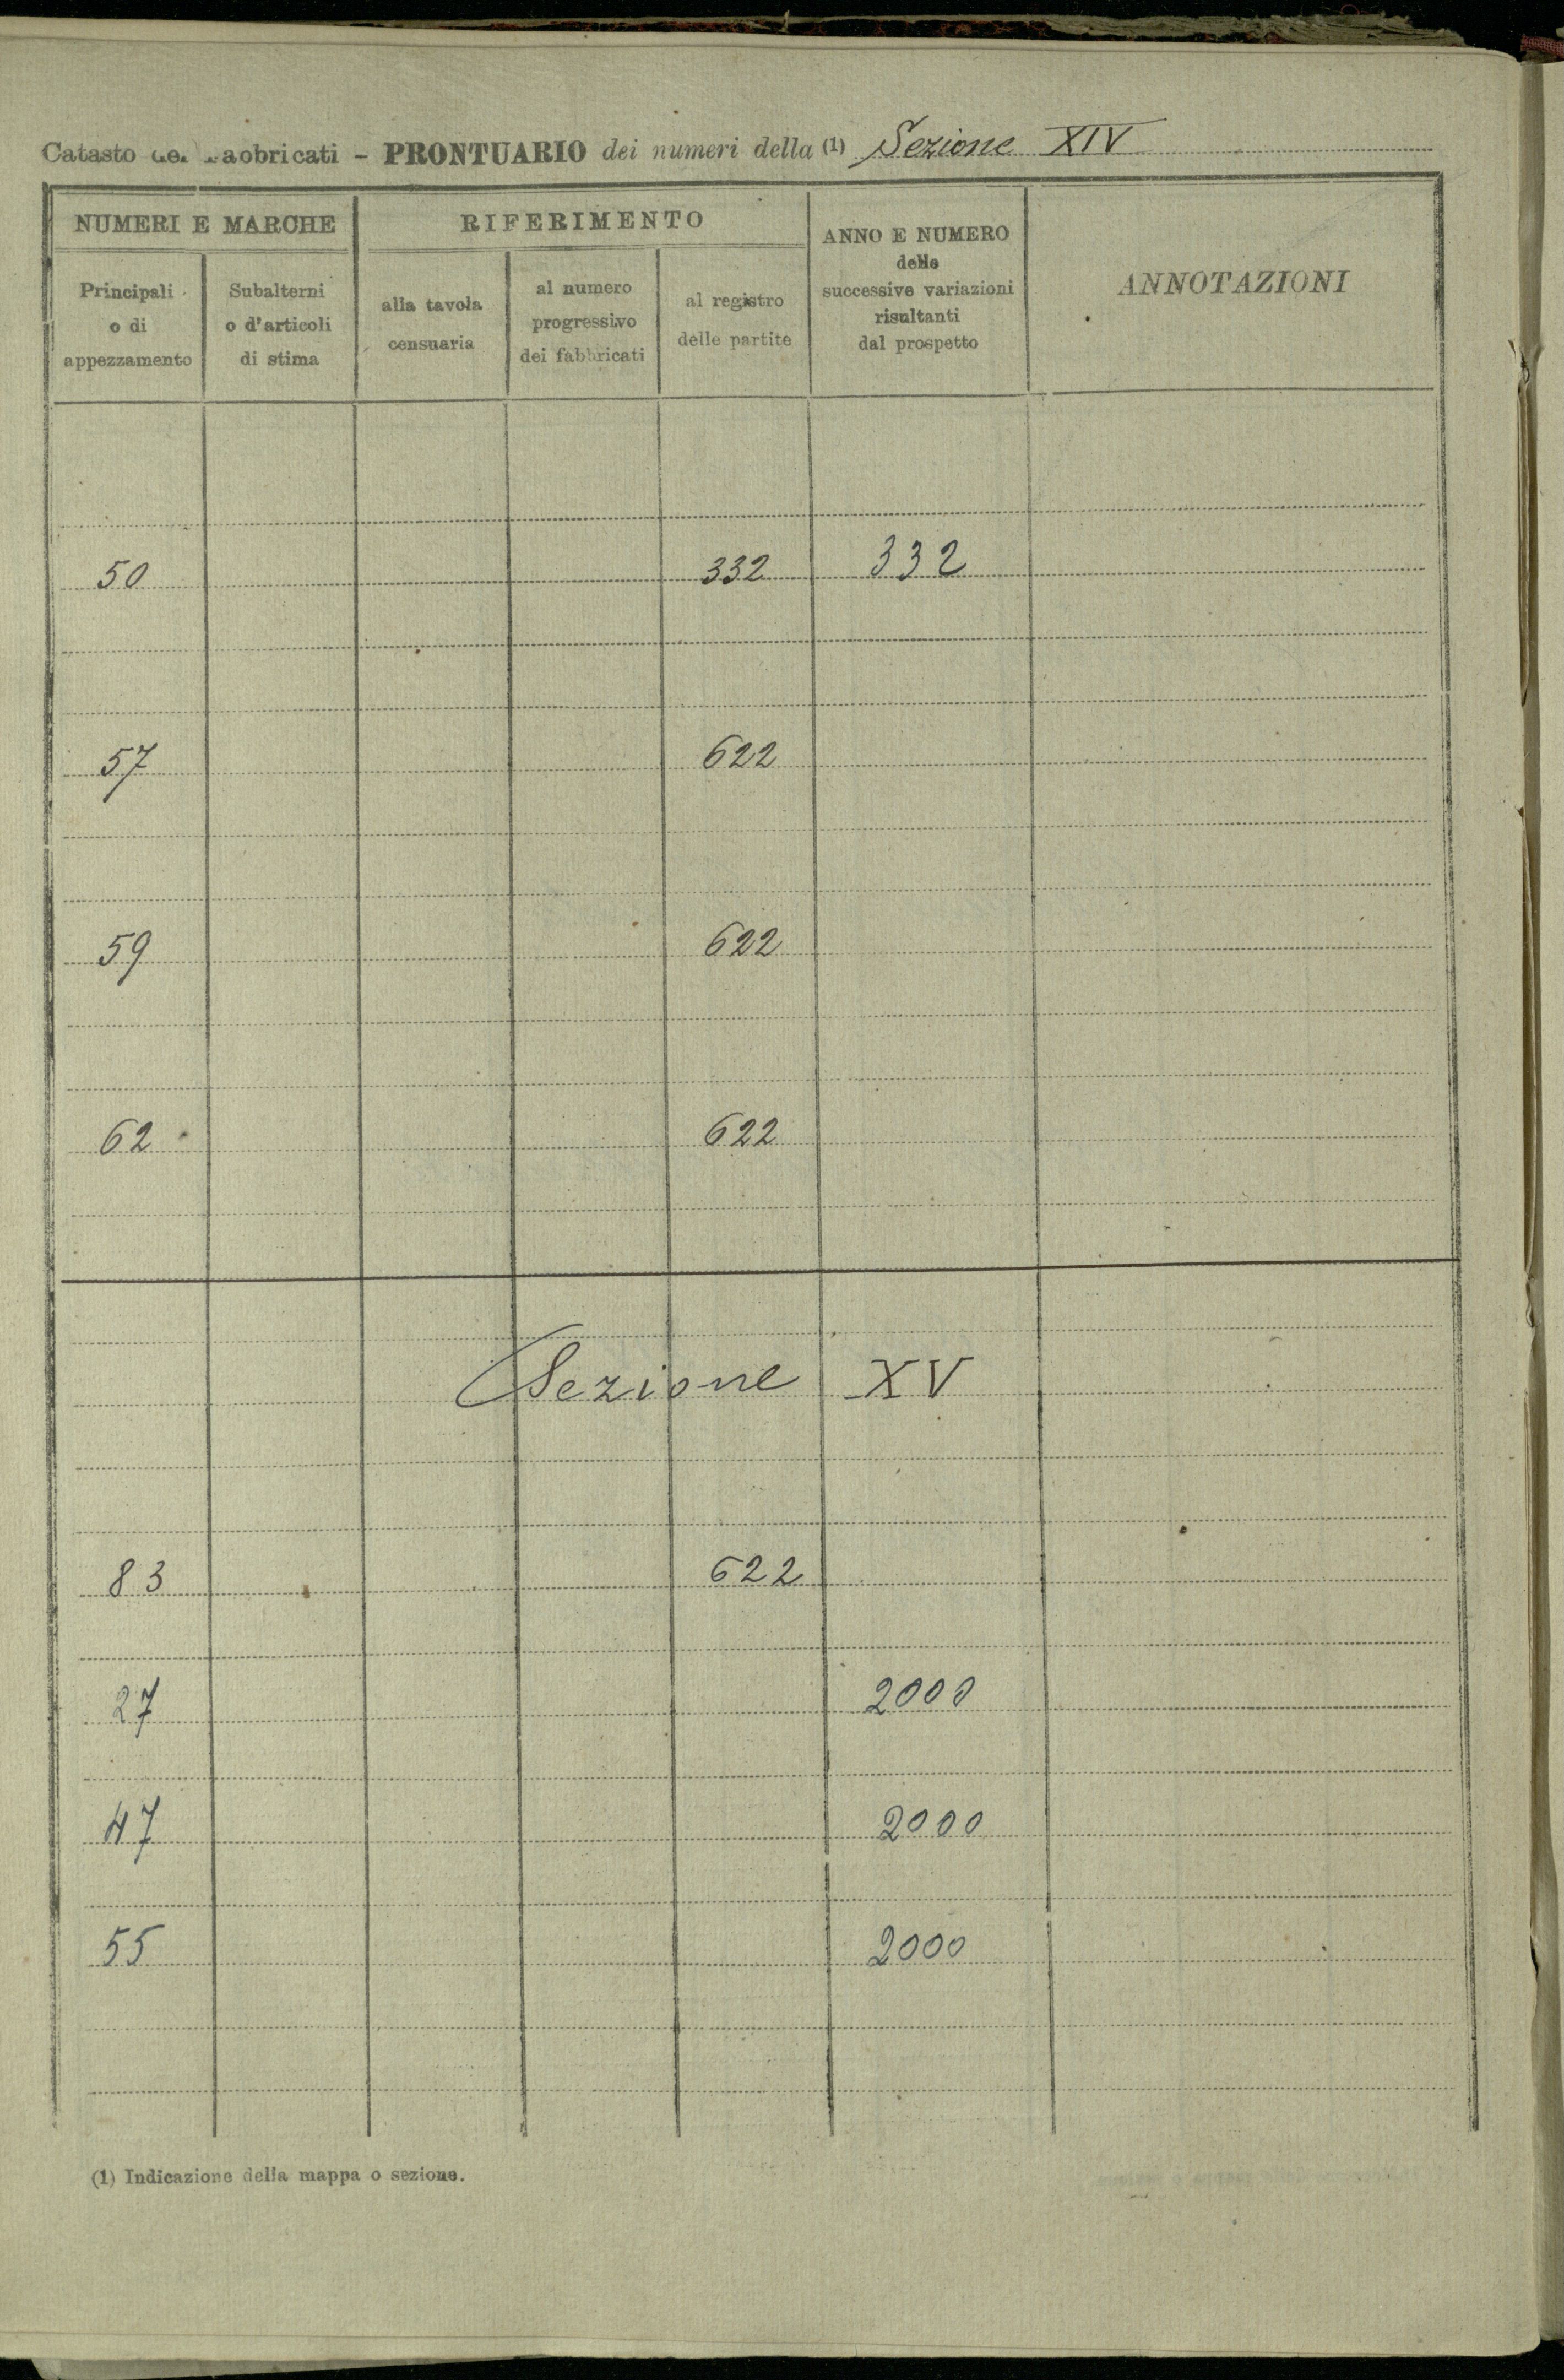 Catasto dei Fabbricati - PRONTUARIO dei numeri della (1) Sezione XIV
NUMERI E MARCHE
RIFERIMENTO
ANNO E NUMERO
delle
successive variazioni
risultanti
dal prospetto
ANNOTAZIONI
Principali
o di
appezzamento
Subalterni
o d'articoli
di stima
alla tavola
censuaria
al numero
progressivo
dei fabbricati
al registro
delle partite
50 332 332
57 622
59 622
62 622
Sezione XV
83 622
27 2000
47 2000
55 2000
(1) Indicazione della mappa o sezione.